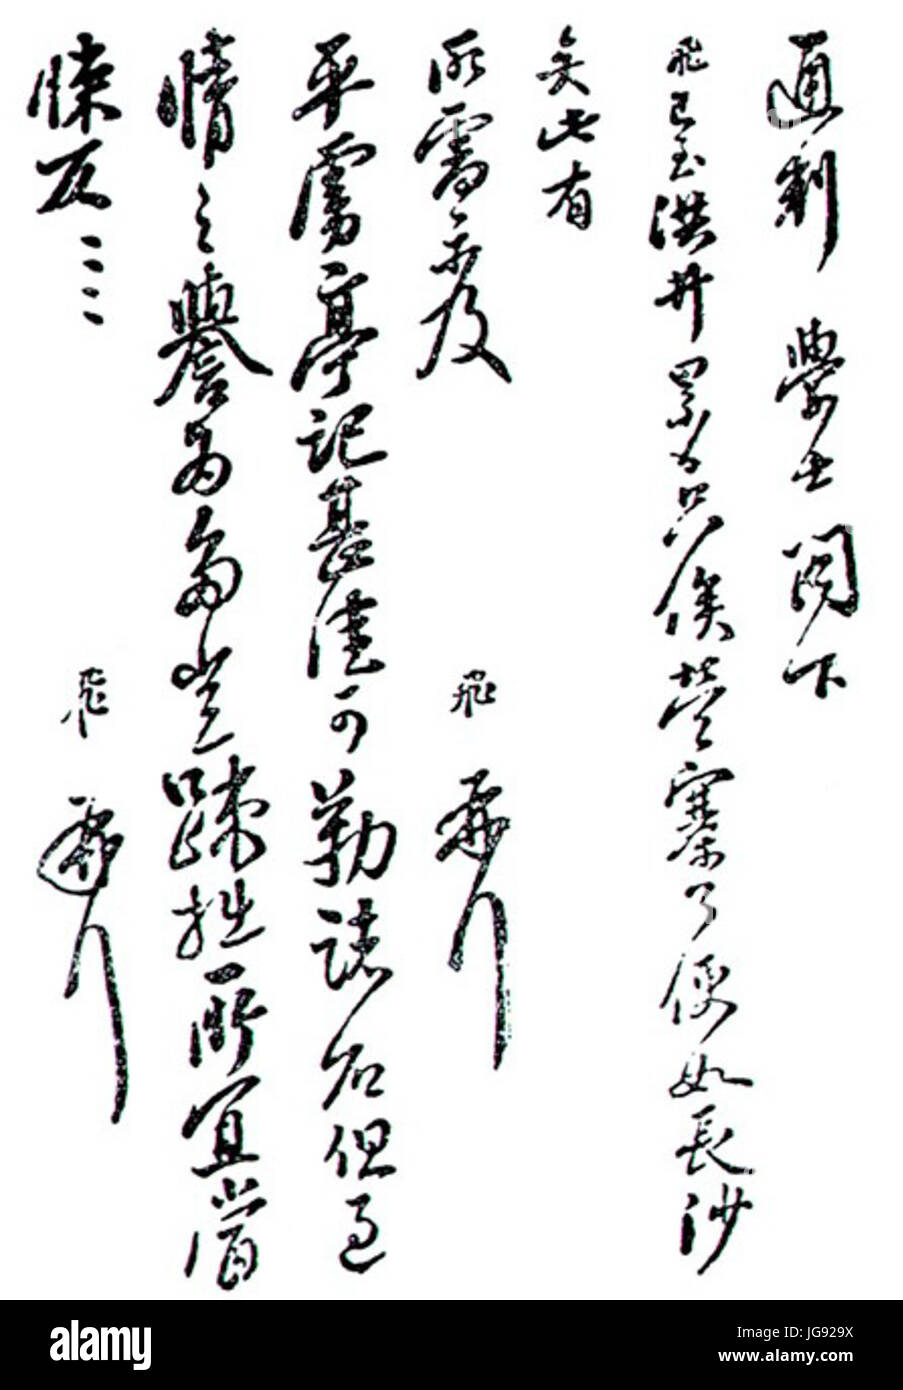 通判學士閣下
飛已至洪井累日只俟營寨了便如長沙
矣此有
所需示及
飛
平虜亭記甚佳可勒諸石但過
情之譽為多豈疎拙所宜當
悚仄〻〻
飛
alamy
Image ID: JG929X
www.alamy.com